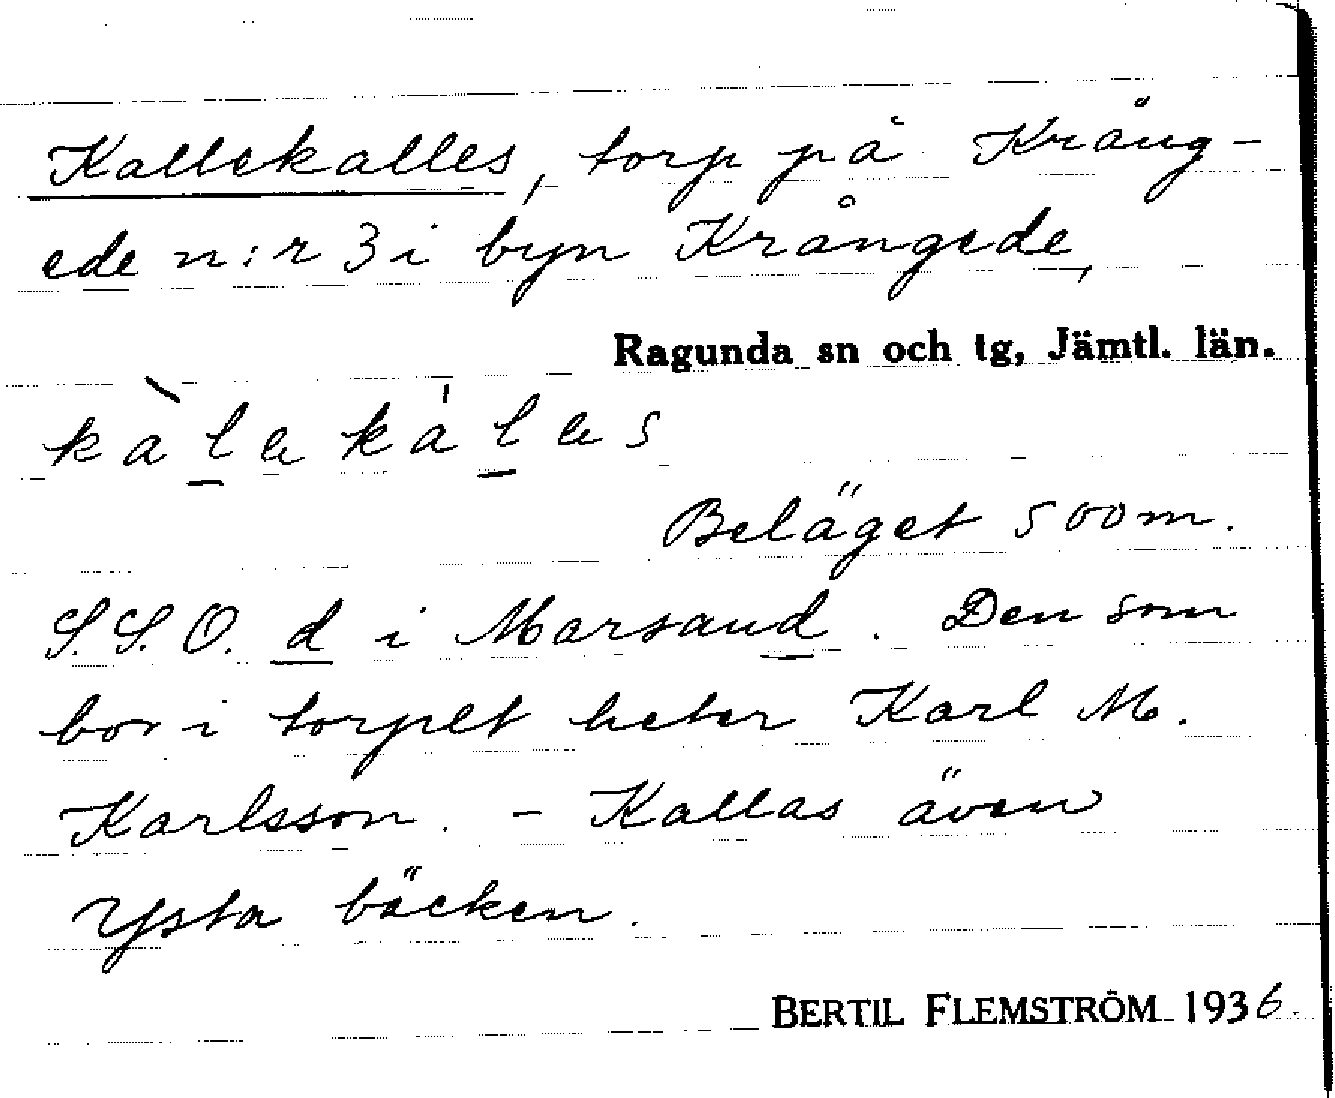 Kallekalles, torp på Krång-
ede n:r 3 i byn Krångede,
Ragunda sn och tg, Jämtl. län.
kàlekáles
Beläget 500 m.
S.S.O. d i Marsand. Den som
bor i torpet heter Karl M.
Karlsson. - Kallas även
Ysta bäcken.
BERTIL FLEMSTRÖM 1936.